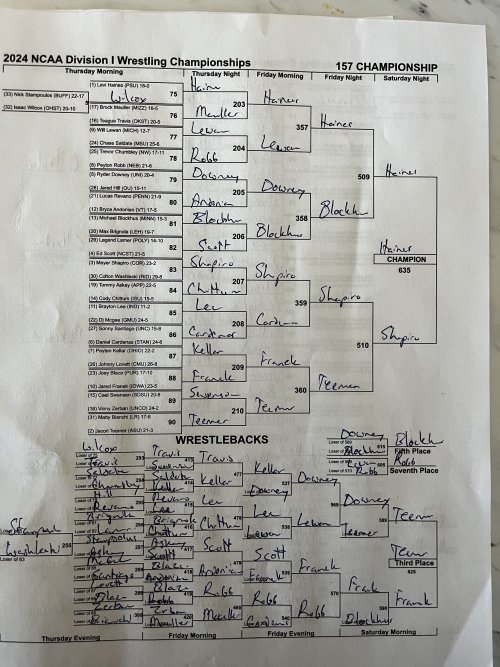 2024 NCAA Division I Wrestling Championships
157 CHAMPIONSHIP
Thursday Morning
Thursday Night
Friday Morning
Friday Night
Saturday Night
(1) Levi Haines (PSU) 18-0
75
(33) Nick Stampoulos (BUFF) 22-17
(32) Isaac Wilcox (OHST) 20-10
Wilcox
Haines
203
(17) Brock Mauller (MIZZ) 16-5
76
(16) Teague Travis (OKST) 20-5
Mauller
Haines
357
(9) Will Lewan (MICH) 12-7
77
(24) Chase Saldate (MSU) 25-6
Lewan
204
(25) Trevor Chumbley (NW) 17-11
78
(8) Peyton Robb (NEB) 21-6
Robb
Lewan
Haines
509
(5) Ryder Downey (UNI) 20-4
79
(28) Jared Hill (OU) 15-11
Downey
205
(21) Lucas Revano (PENN) 21-9
80
(12) Bryce Andonian (VT) 17-5
Andonian
Downey
358
(13) Michael Blockhus (MINN) 15-3
81
(20) Max Brignola (LEH) 19-7
Blockhus
206
(29) Legend Lamer (POLY) 14-10
82
(4) Ed Scott (NCST) 21-5
Scott
Blockhus
Blockhus
Haines
Haines
CHAMPION
635
(3) Meyer Shapiro (COR) 23-2
83
(30) Colton Washleski (RID) 29-8
Shapiro
207
(19) Tommy Askey (APP) 22-5
84
(14) Cody Chittum (ISU) 18-5
Chittum
Shapiro
359
(11) Brayton Lee (IND) 11-2
85
(22) Dj Mcgee (GMU) 24-5
Lee
208
(27) Sonny Santiago (UNC) 15-8
86
(6) Daniel Cardenas (STAN) 24-6
Cardenas
Cardenas
Shapiro
510
Shapiro
(7) Peyton Keller (OHIO) 22-2
87
(26) Johnny Lovett (CMU) 26-8
Keller
209
(23) Joey Blaze (PUR) 17-10
88
(10) Jared Franek (IOWA) 23-5
Franek
Franek
360
(15) Caal Swenson (SDSU) 20-8
89
(18) Vinny Zerban (UNCO) 24-2
Swenson
210
(31) Matty Bianchi (LR) 17-8
90
(2) Jacori Teemer (ASU) 21-3
Teemer
Teemer
Teemer
WRESTLEBACKS
Downey
Blockhus
Blockhus
Fifth Place
Lewan
Robb
Robb
Seventh Place
Wilcox
Travis
Travis
Travis
Saldate
Saldate
Keller
Keller
Keller
Downey
Downey
Chumbley
Hill
Revano
Revano
Lee
Lee
Lee
Lewan
Lewan
Downey
Teemer
Teemer
Brignola
Brignola
Chittum
Chittum
Lamer
Stampoulos
Washleski
255
Stampoulos
Askey
Askey
Scott
Scott
Scott
Franek
Franek
Teemer
Third Place
Santiago
Lovett
Andonian
Andonian
Blaze
Blaze
Robb
Robb
Robb
Franek
Blockhus
Franek
Zerban
Zerban
Bianchi
Mauller
Mauller
Cardenas
Thursday Evening
Friday Morning
Friday Evening
Saturday Morning